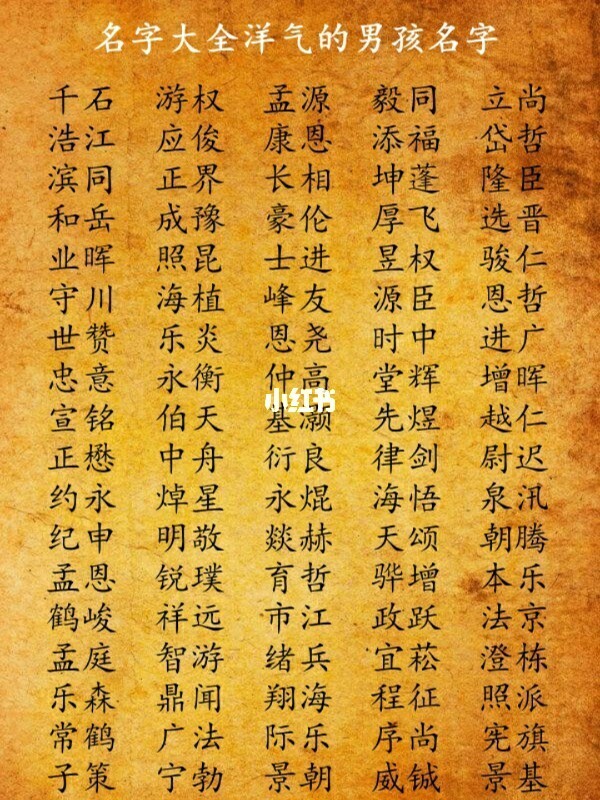 名字大全洋气的男孩名字
千石 游权 孟源 毅同 立尚
浩江 应俊 康恩 添福 岱哲
滨同 正界 长相 坤蓬 隆臣
和岳 成豫 豪伦 厚飞 选晋
业晖 照昆 士进 昱权 骏仁
守川 海植 峰友 源臣 恩哲
世赞 乐炎 恩尧 时中 进广
忠意 永衡 仲高 堂辉 增晖
小红书
宣铭 伯天 基灏 先煜 越仁
正懋 中舟 衍良 律剑 尉迟
约永 焯星 永焜 海悟 泉汛
纪申 明敬 燚赫 天颂 朝腾
孟恩 锐璞 育哲 骅增 本乐
鹤峻 祥远 市江 政跃 法京
孟庭 智游 绪兵 宜菘 澄栋
乐森 鼎闻 翔海 程征 照派
常鹤 广法 际乐 序尚 宪旗
子策 宁勃 景朝 威铖 景基